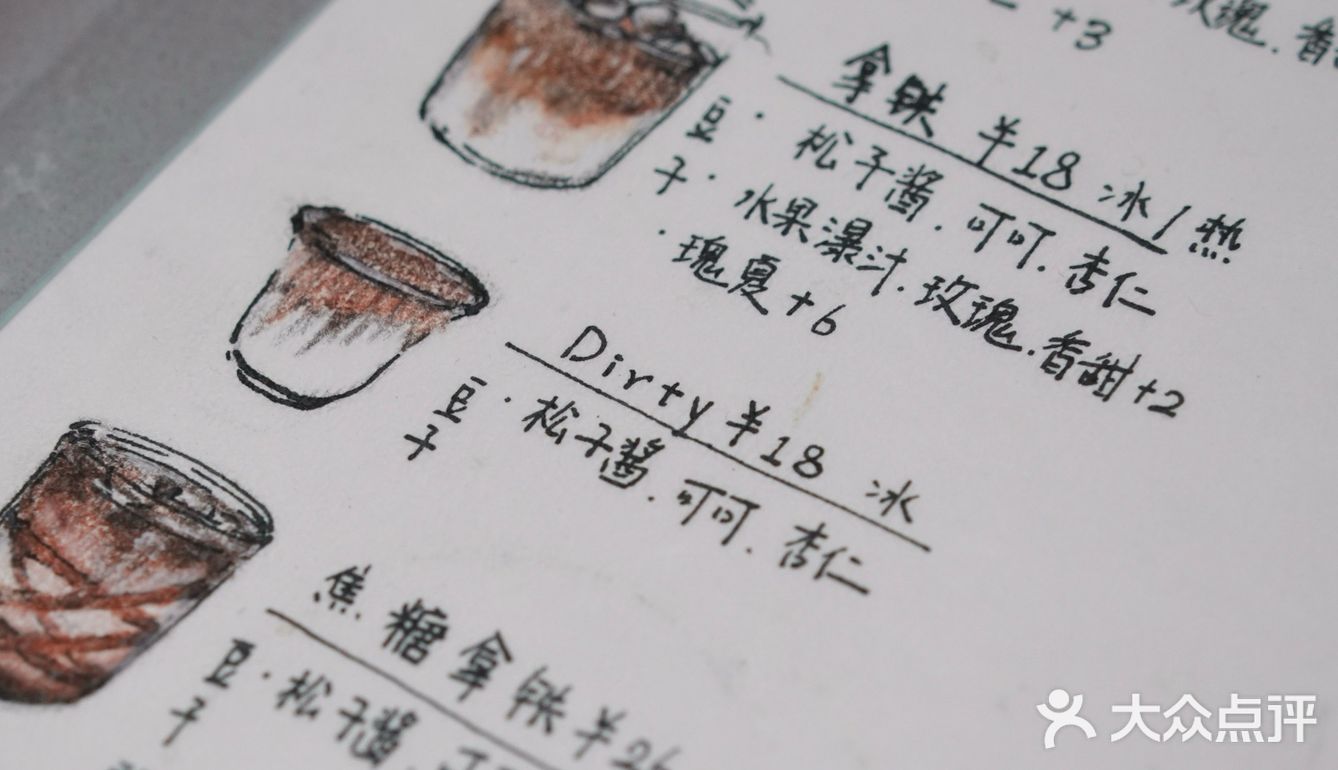 +3
玫瑰.香
拿铁 ¥18 冰/热
豆子
· 松子酱.可可.杏仁
· 水果瀑汁.玫瑰.香甜+2
· 瑰夏+6
Dirty ¥18 冰
豆子
· 松子酱.可可.杏仁
焦糖拿铁 ¥26
豆子
· 松子酱.
大众点评